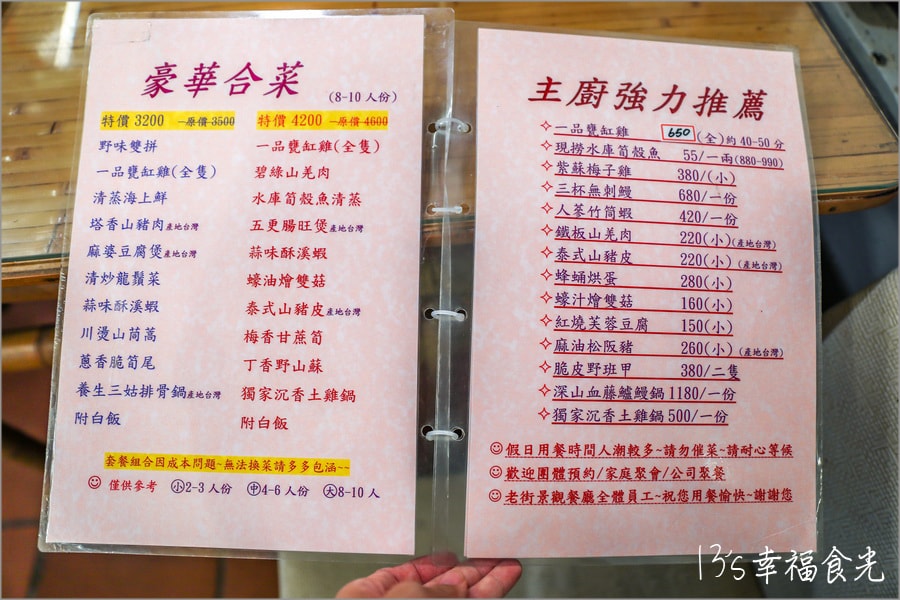 豪華合菜
(8-10 人份)
特價 3200 —原價 3500
野味雙拼
一品甕缸雞(全隻)
清蒸海上鮮
塔香山豬肉產地台灣
麻婆豆腐煲產地台灣
清炒龍鬚菜
蒜味酥溪蝦
川燙山茼蒿
蔥香脆筍尾
養生三姑排骨鍋產地台灣
附白飯
特價 4200 —原價 4600
一品甕缸雞(全隻)
碧綠山羌肉
水庫筍殼魚清蒸
五更腸旺煲產地台灣
蒜味酥溪蝦
蠔油燴雙菇
泰式山豬皮產地台灣
梅香甘蔗筍
丁香野山蘇
獨家沉香土雞鍋
附白飯
套餐組合因成本問題~無法換菜請多多包涵~~
僅供參考 小2-3 人份 中4-6 人份 大8-10 人
主廚強力推薦
一品甕缸雞 650 (全)約 40-50 分
現撈水庫筍殼魚 55/一兩(880-990)
紫蘇梅子雞 380/(小)
三杯無刺鰻 680/一份
人蔘竹筒蝦 420/一份
鐵板山羌肉 220(小)(產地台灣)
泰式山豬皮 220(小)(產地台灣)
蜂蛹烘蛋 280(小)
蠔汁燴雙菇 160(小)
紅燒芙蓉豆腐 150(小)
麻油松阪豬 260(小)(產地台灣)
脆皮野班甲 380/二隻
深山血藤鱸鰻鍋 1180/一份
獨家沉香土雞鍋 500/一份
假日用餐時間人潮較多~請勿催菜~請耐心等候
歡迎團體預約/家庭聚會/公司聚餐
老街景觀餐廳全體員工~祝您用餐愉快~謝謝您
13's幸福食光